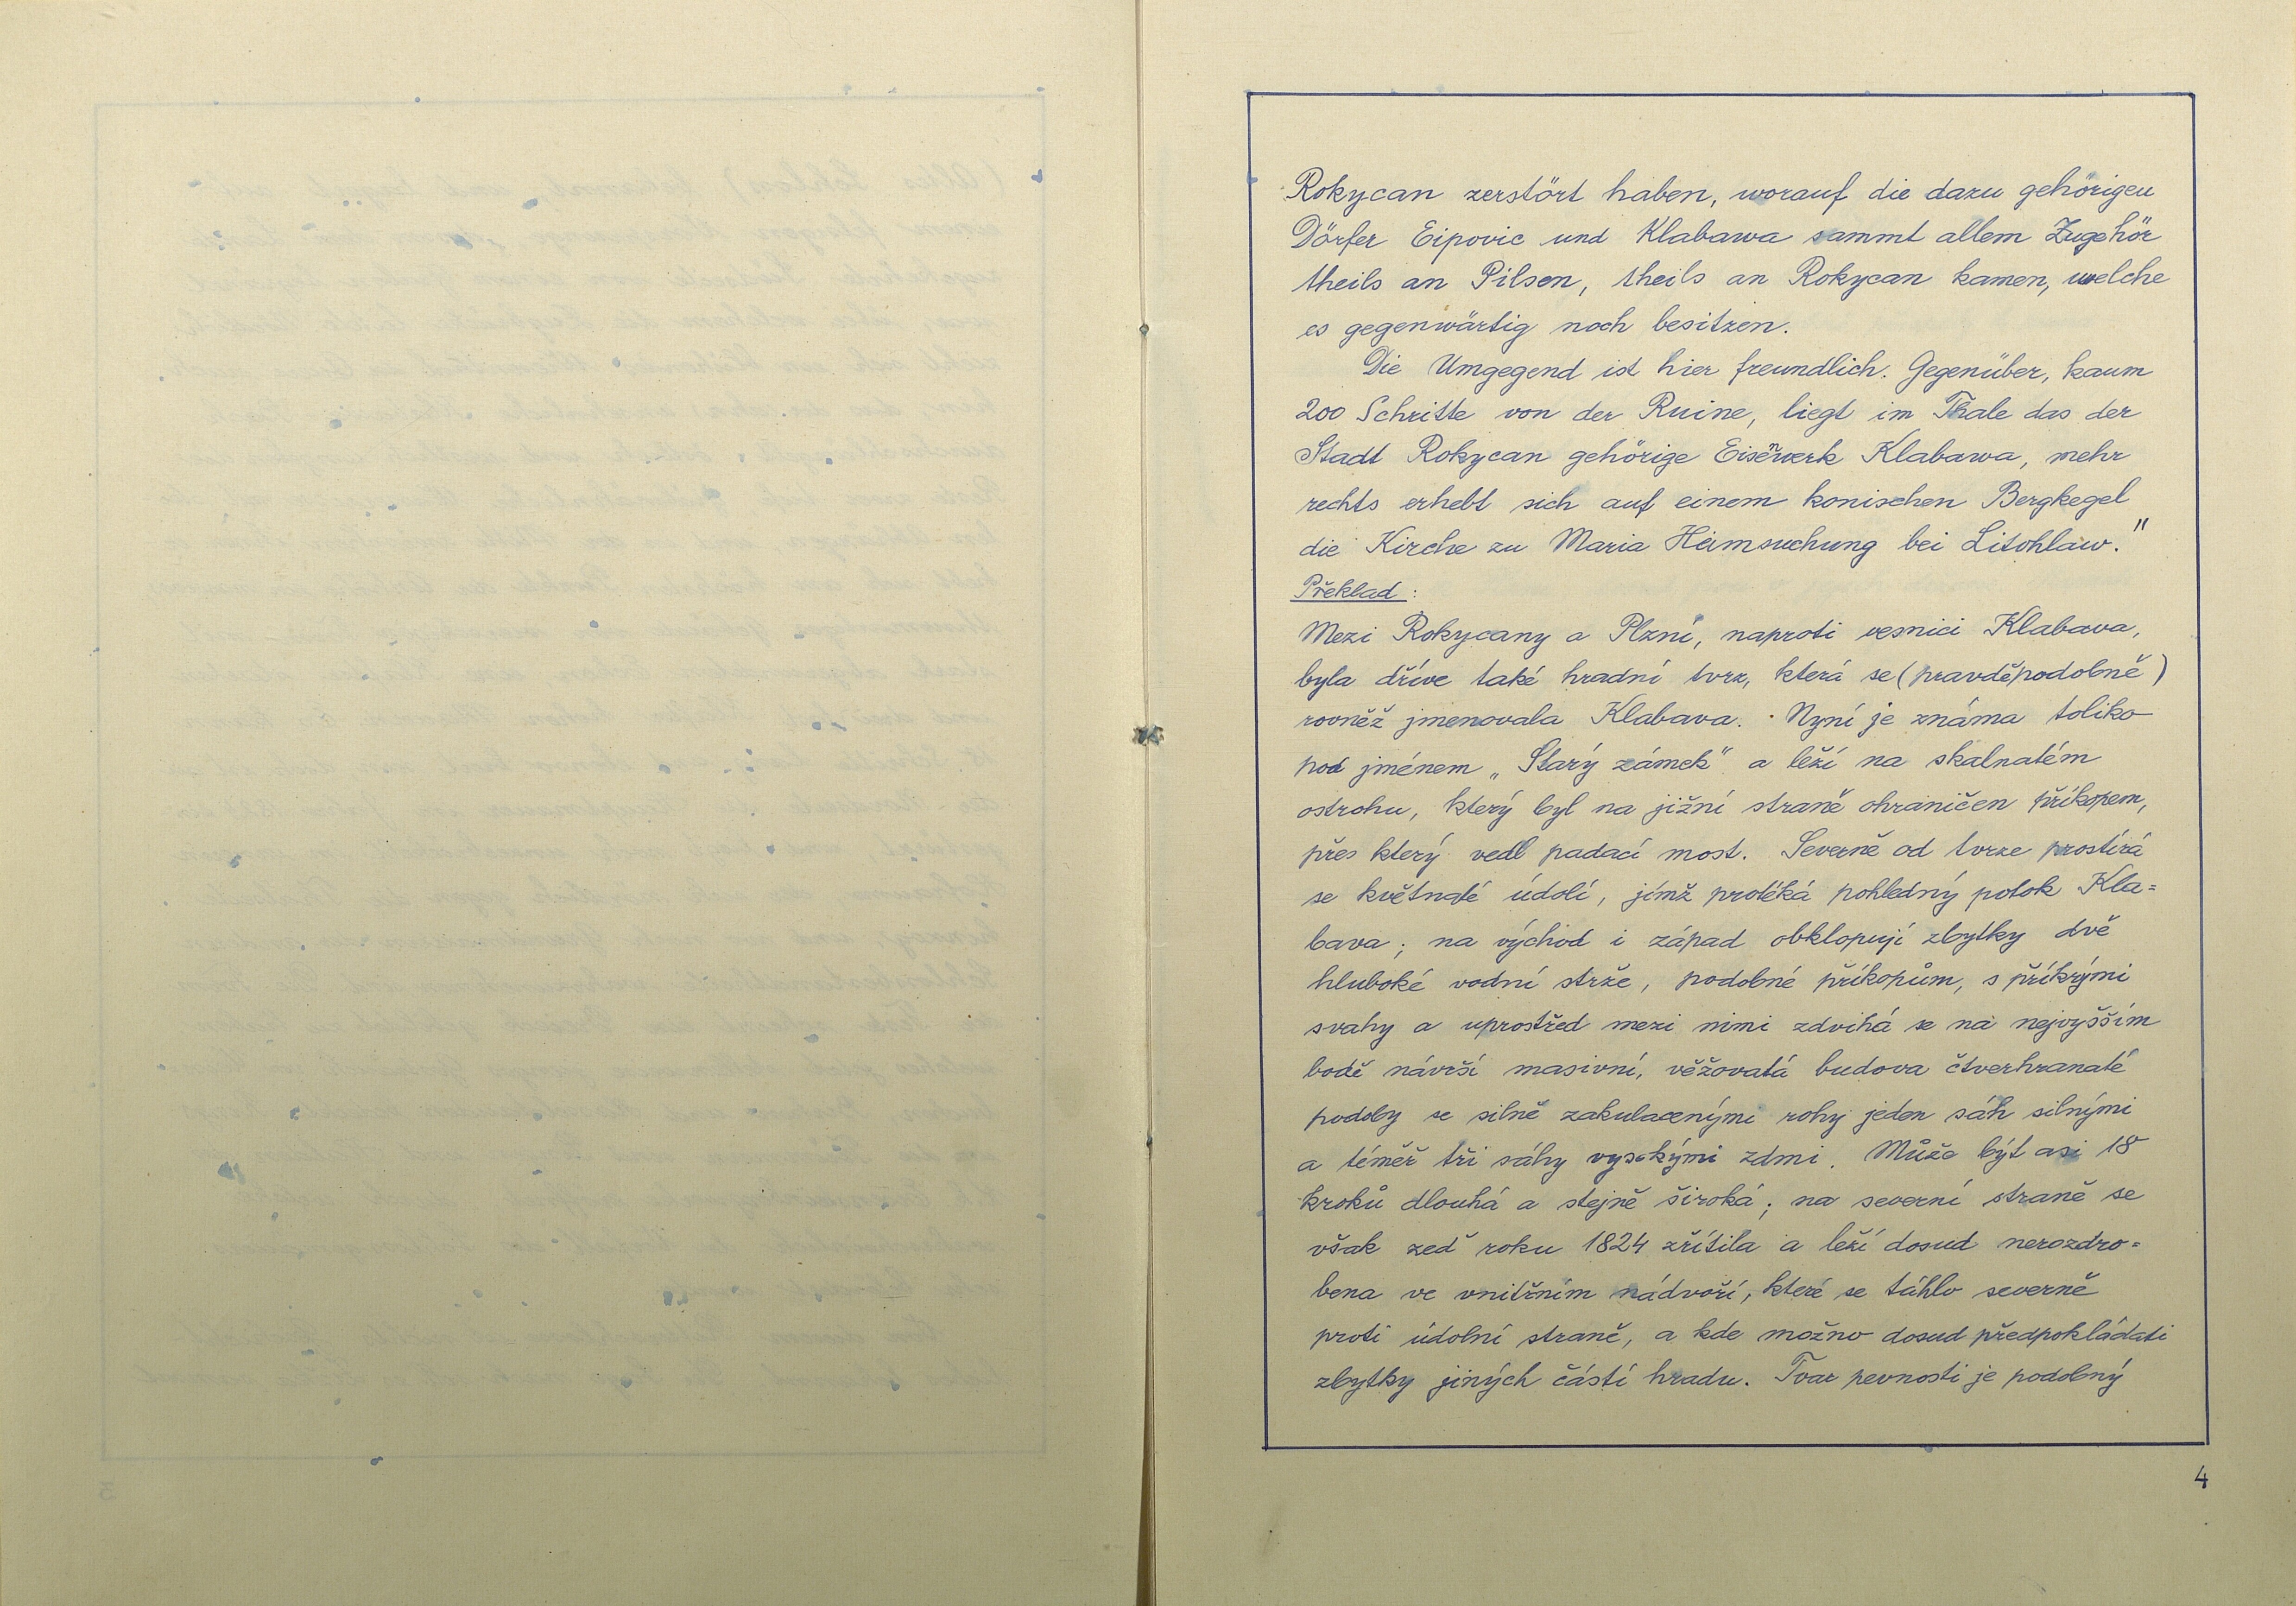 Rokycan zerstört haben, worauf die dazu gehörigen
Dörfer Eipovic und Klabawa sammt allem Zugehör
theils an Pilsen, theils an Rokycan kamen, welche
es gegenwärtig noch besitzen.
Die Umgegend ist hier freundlich. Gegenüber, kaum
200 Schritte von der Ruine, liegt im Thale das der
Stadt Rokycan gehörige Eisenwerk Klabawa, mehr
rechts erhebt sich auf einem konischen Bergkegel
die Kirche zu Maria Heimsuchung bei Litohlaw."
Překlad:
Mezi Rokycany a Plzní, naproti vesnici Klabava,
byla dříve také hradní tvrz, která se (pravděpodobně)
rovněž jmenovala Klabava. Nyní je známa toliko
pod jménem „Starý zámek" a leží na skalnatém
ostrohu, který byl na jižní straně ohraničen příkopem,
přes který vedl padací most. Severně od tvrze prostírá
se květnaté údolí, jímž protéká pohledný potok Kla=
bava; na východ i západ obklopují zbytky dvě
hluboké vodní strže, podobné příkopům, s příkrými
svahy a uprostřed mezi nimi zdvihá se na nejvyšším
bodě návrší masivní, věžovatá budova čtverhranaté
podoby se silně zakulacenými rohy jeden sáh silnými
a téměř tři sáhy vysokými zdmi. Může být asi 18
kroků dlouhá a stejně široká; na severní straně se
však zeď roku 1824 zřítila a leží dosud nerozdro=
bena ve vnitřním nádvoří, které se táhlo severně
proti údolní straně, a kde možno dosud předpokládati
zbytky jiných částí hradu. Tvar pevnosti je podobný
4